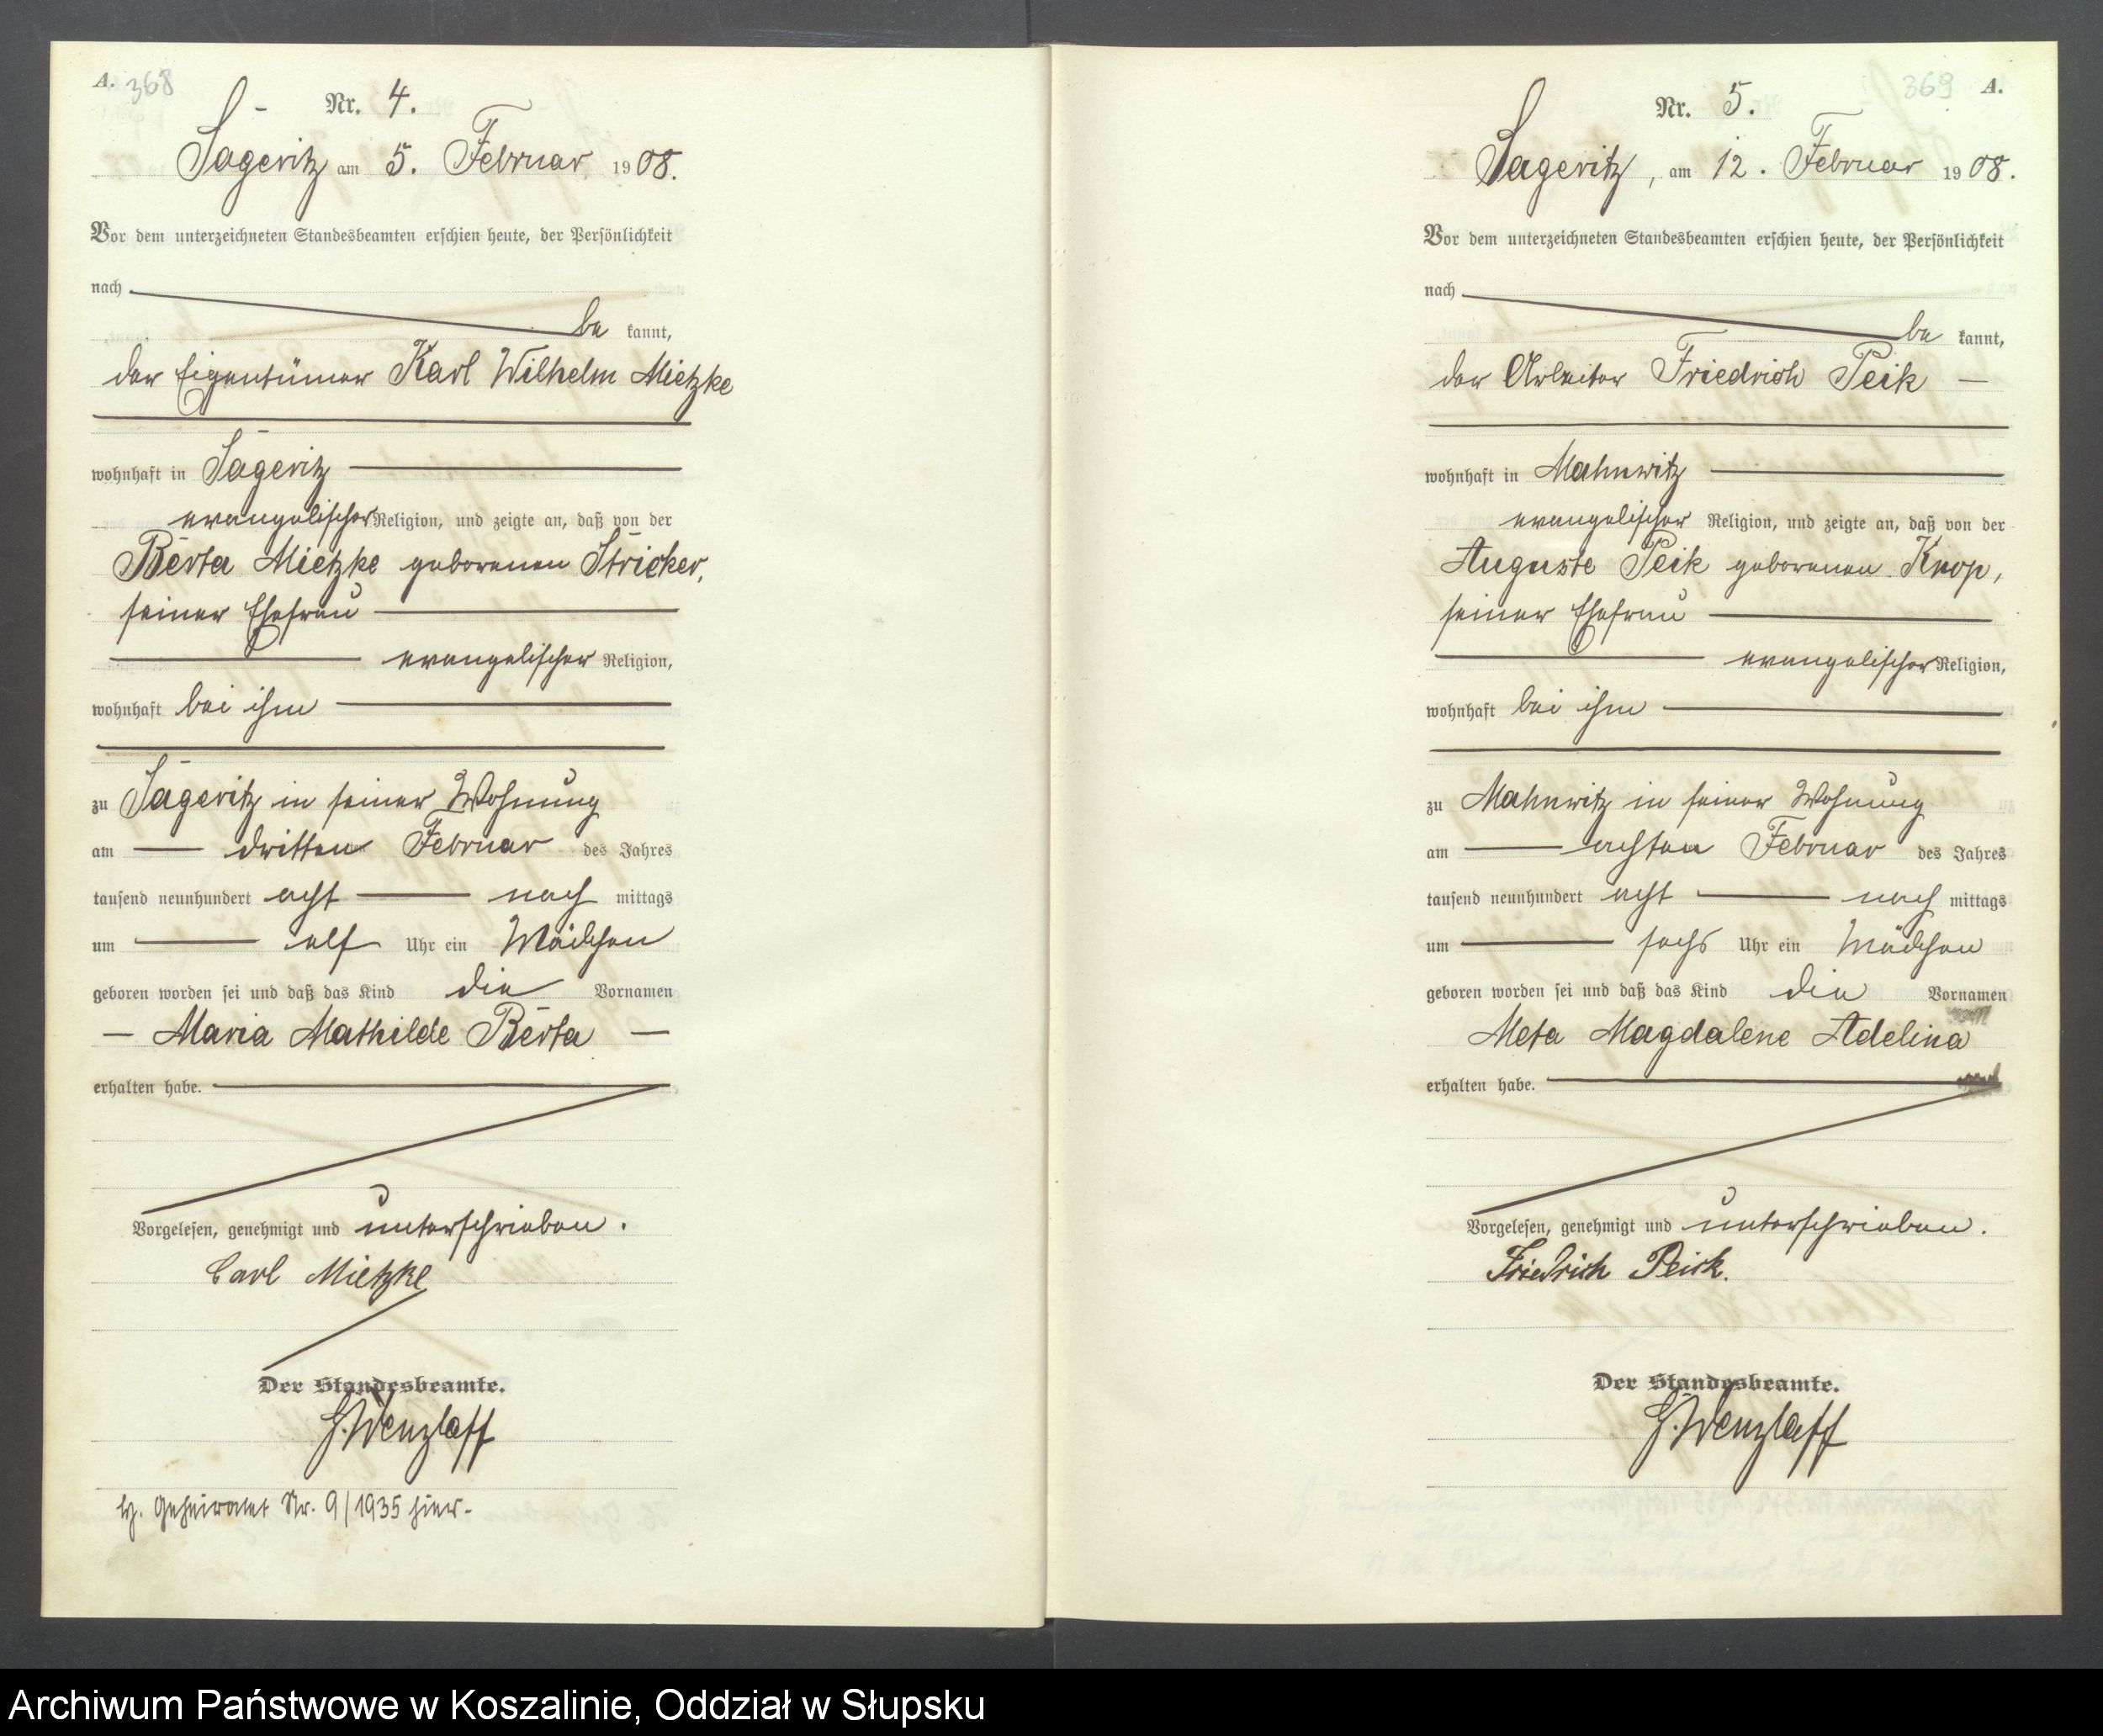 A. 368
Nr. 4.
Sageritz am 5. Februar 1908.
Vor dem unterzeichneten Standesbeamten erschien heute, der Persönlichkeit
nach
be kannt,
der Eigentümer Karl Wilhelm Mietzke
wohnhaft in Sageritz
evangelischer Religion, und zeigte an, daß von der
Berta Mietzke geborenen Stricker,
seiner Ehefrau
evangelischer Religion,
wohnhaft bei ihm
zu Sageritz in seiner Wohnung
am dritten Februar des Jahres
tausend neunhundert acht nach mittags
um elf Uhr ein Mädchen
geboren worden sei und daß das Kind die Vornamen
Maria Mathilde Berta
erhalten habe.
Vorgelesen, genehmigt und unterschrieben.
Carl Mietzke
Der Standesbeamte.
G. Wenzlaff
Geheiratet Nr. 9/1935 hier-
369 A.
Nr. 5.
Sageritz, am 12. Februar 1908.
Vor dem unterzeichneten Standesbeamten erschien heute, der Persönlichkeit
nach
be kannt,
der Arbeiter Friedrich Peik
wohnhaft in Mahnwitz
evangelischer Religion, und zeigte an, daß von der
Auguste Peik geborenen Knop,
seiner Ehefrau
evangelischer Religion,
wohnhaft bei ihm
zu Mahnwitz in seiner Wohnung
am achten Februar des Jahres
tausend neunhundert acht nach mittags
um sechs Uhr ein Mädchen
geboren worden sei und daß das Kind die Vornamen
Meta Magdalene Adelina
erhalten habe.
Vorgelesen, genehmigt und unterschrieben.
Friedrich Peick.
Der Standesbeamte.
G. Wenzlaff
Archiwum Państwowe w Koszalinie, Oddział w Słupsku